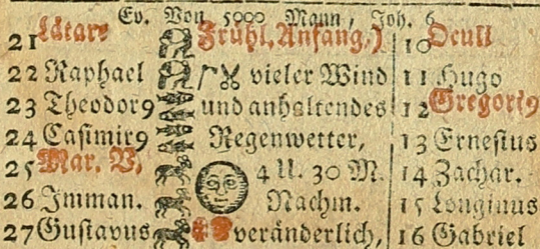 Ev. Von 5000 Mann, Joh. 6
21 Lätare Frühl. Anfang, 10 Oculi
22 Raphael vieler Wind 11 Hugo
23 Theodor9 und anhaltendes 12 Gregori9
24 Casimir9 Regenwetter, 13 Ernestus
25 Mar. V. 4 U. 30 M. 14 Zachar.
26 Imman. Nachm. 15 Longinus
27 Gustavus veränderlich, 16 Gabriel